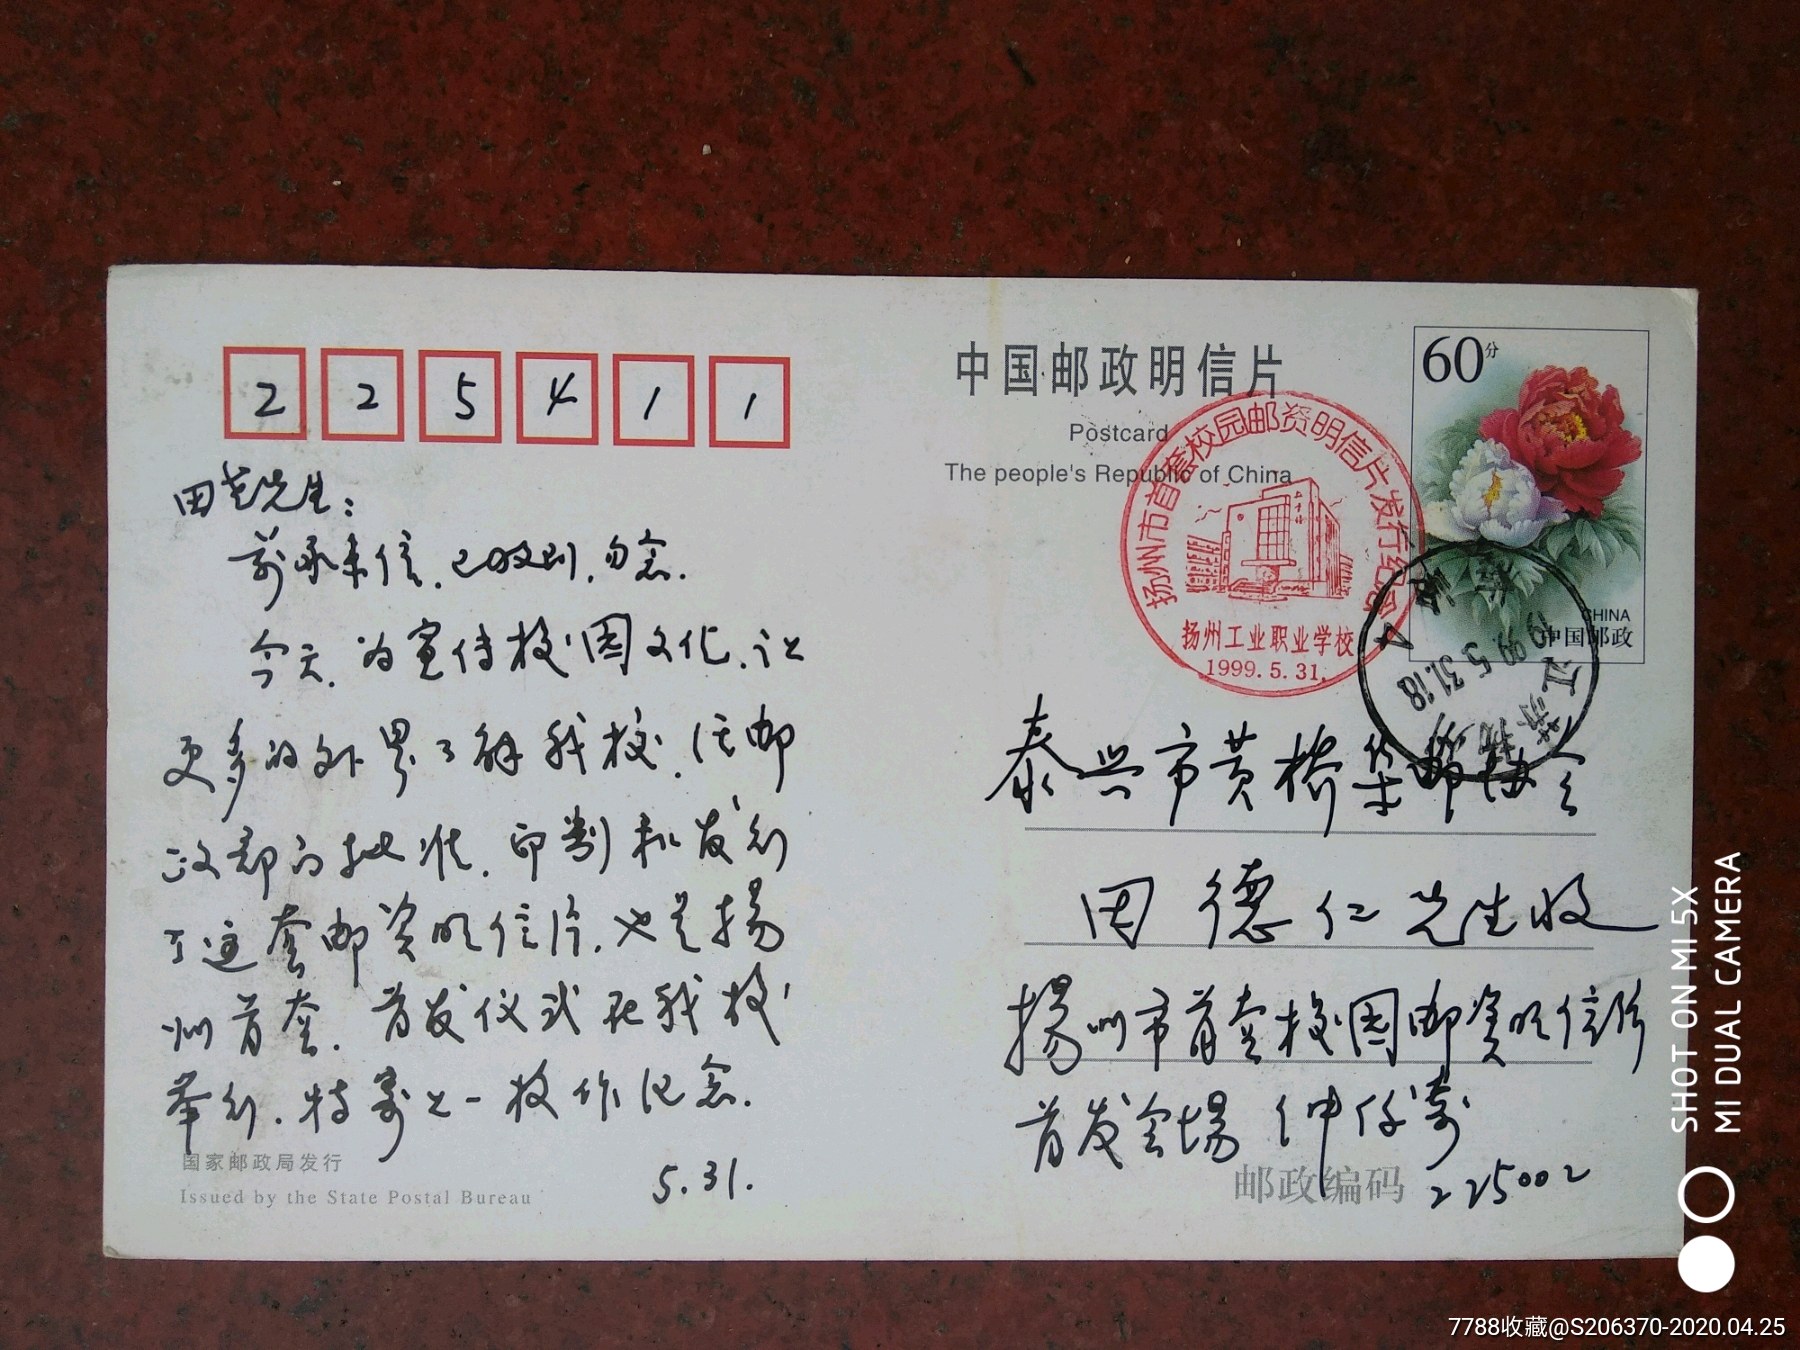 225411
田老先生：
前承来信，已收到，勿念。
今天，为宣传校园文化，让
更多的外界了解我校，经邮
政部门批准，印制和发行
了这套邮资明信片，也是扬
州首套，首发仪式在我校
举行，特寄上一枚作纪念。
5.31.
国家邮政局发行
Issued by the State Postal Bureau
中国邮政明信片
Postcard
The people's Republic of China
60分
CHINA
中国邮政
扬州市首套校园邮资明信片发行纪念
扬州工业职业学校
1999.5.31.
江苏扬州
1999.5.31.18
泰兴市黄桥集邮协会
田德仁先生收
扬州市首套校园邮资明信片
首发会场 仲仔寄
邮政编码 225002
SHOT ON MI 5X
MI DUAL CAMERA
7788收藏@S206370-2020.04.25